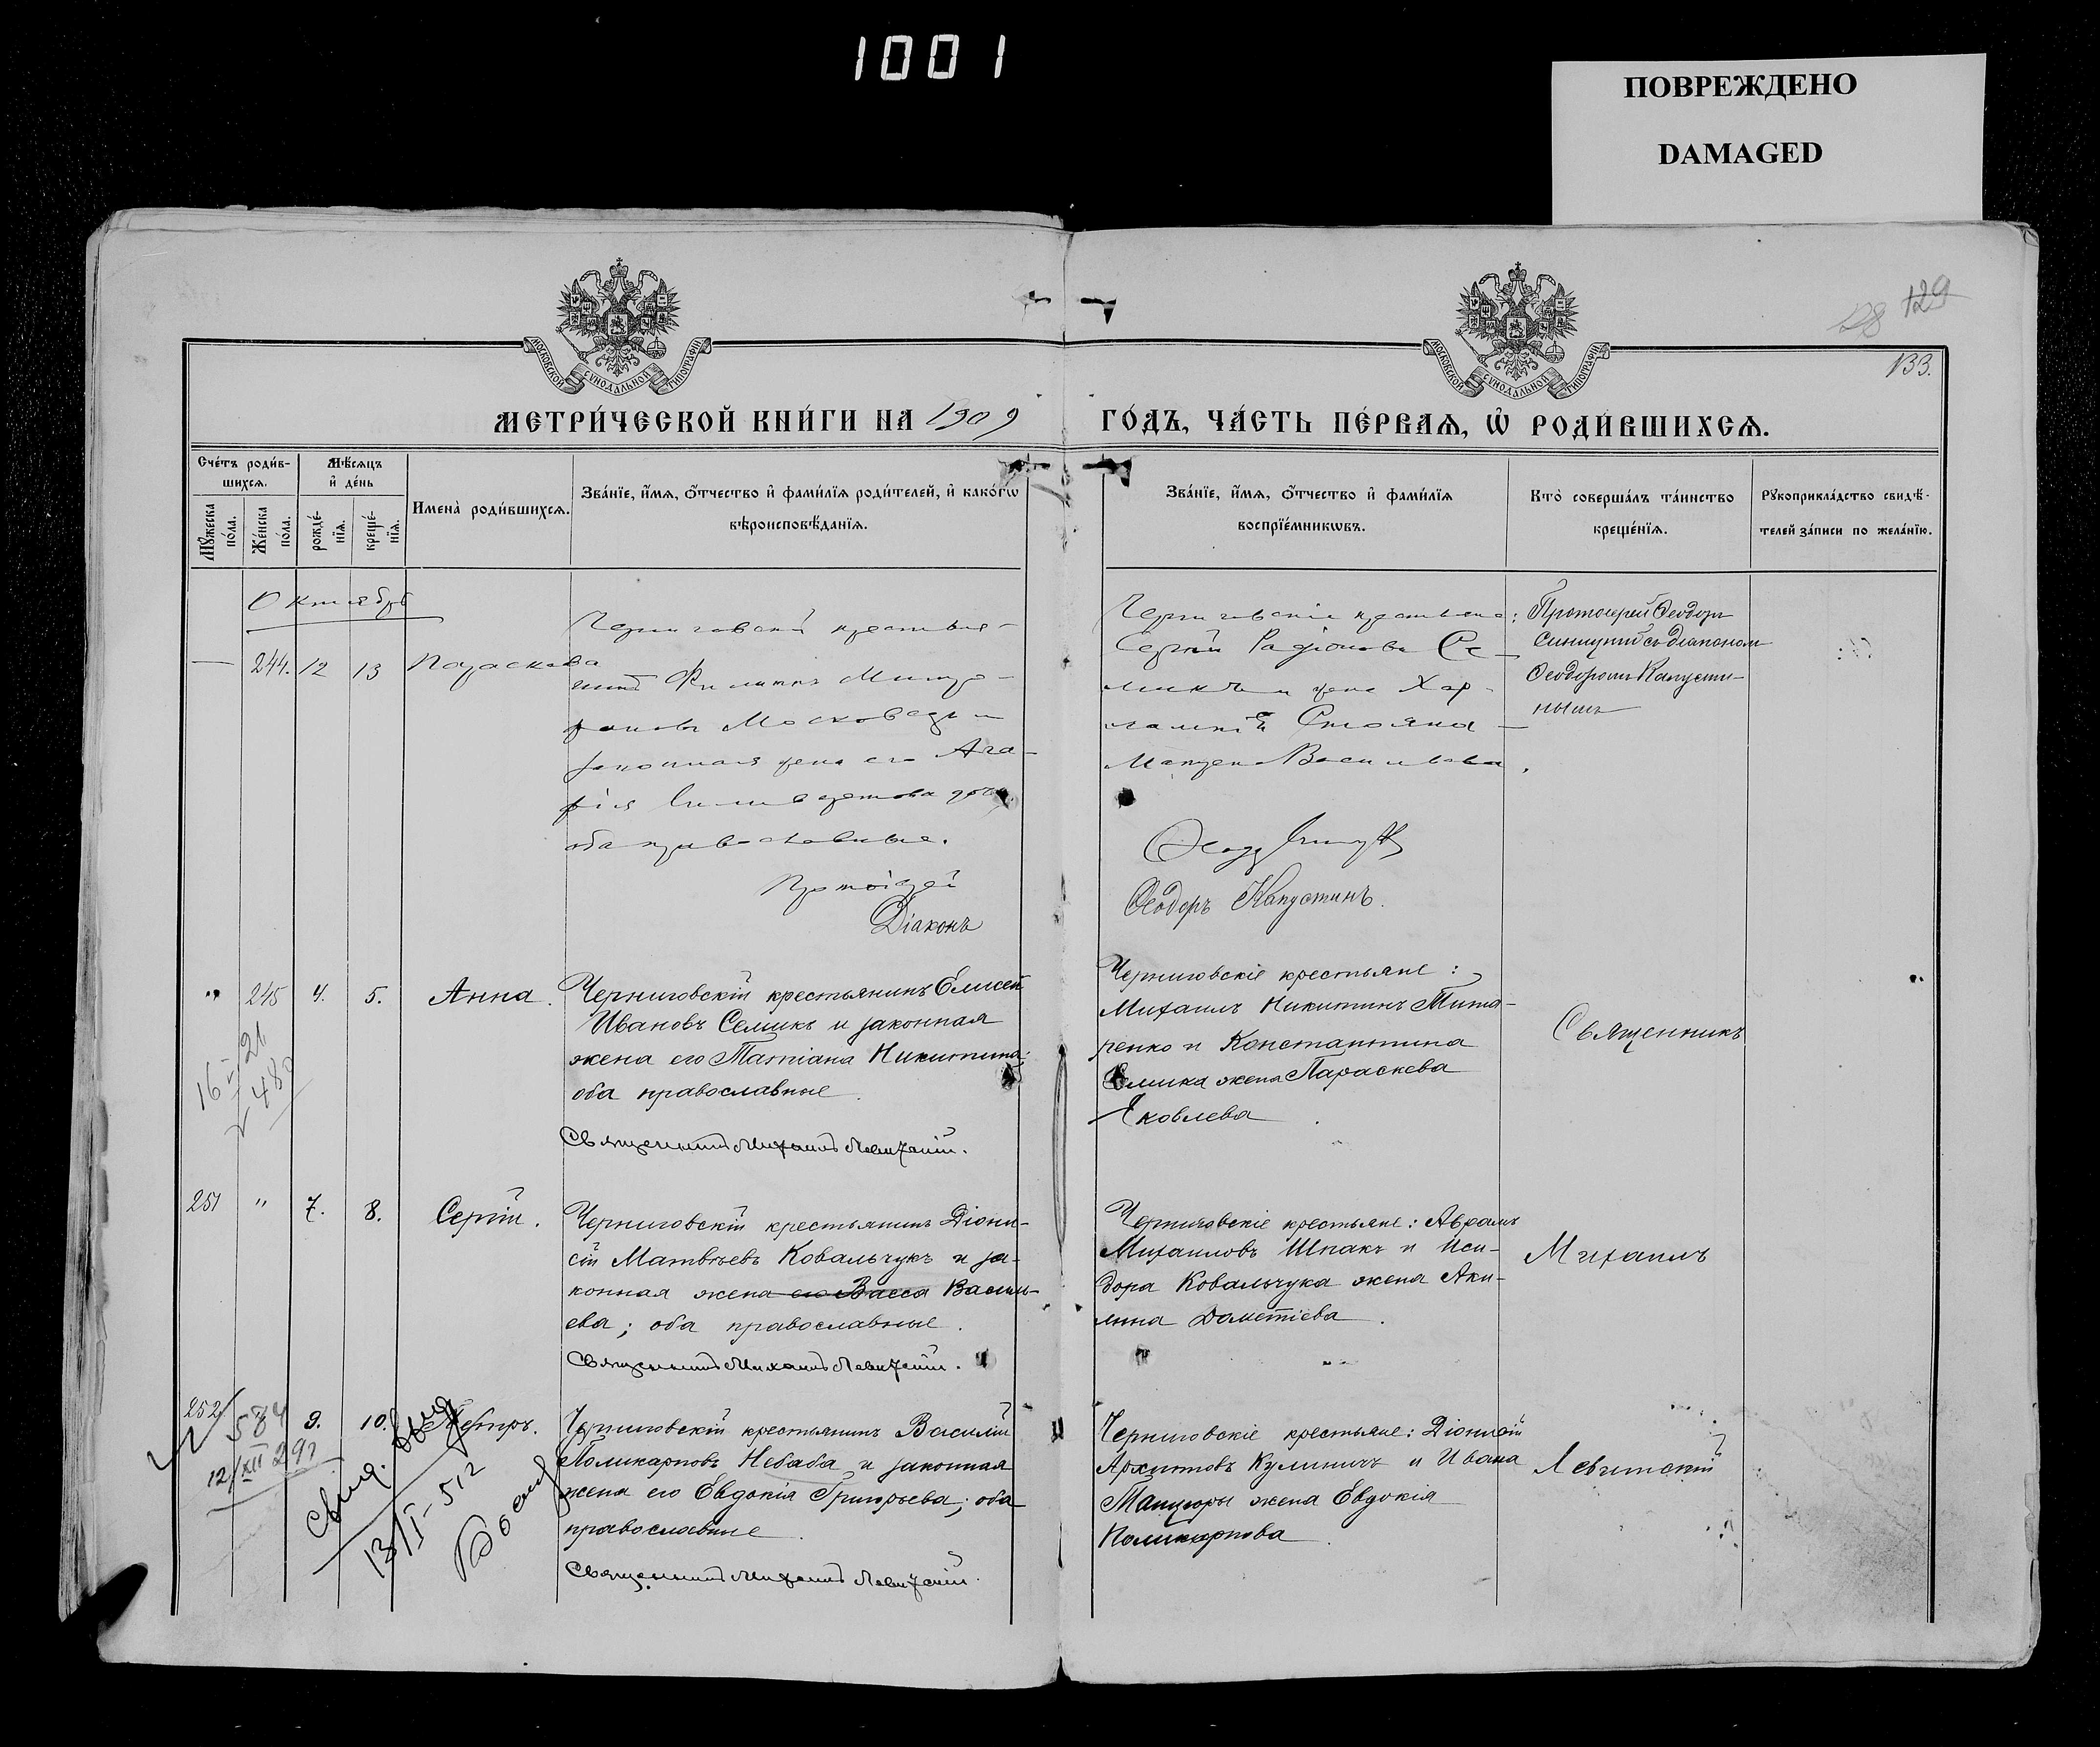 1001
ПОВРЕЖДЕНО
DAMAGED
129
133.
МОСКОВСКОЙ СѴНОДАЛЬНОЙ ТИПОГРАФІИ
МОСКОВСКОЙ СѴНОДАЛЬНОЙ ТИПОГРАФІИ
МЕТРИ́ЧЕСКОЙ КНИ́ГИ НА 1909 ГО́ДЪ, ЧА́СТЬ ПЕ́РВАѦ, Ѽ РОДИ́ВШИХСѦ.
Сче́тъ роди́в-
шихсѧ.
Мꙋ́жеска по́ла.
Же́нска по́ла.
Мѣ́сѧцъ
и҆ де́нь
рожде́-
нїѧ.
креще́-
нїѧ.
Имена̀ роди́вшихсѧ.
Зва́нїе, и҆́мѧ, ѻ҆́тчество и҆ фами́лїѧ роди́телей, и҆ како́гѡ
вѣроисповѣ́данїѧ.
Зва́нїе, и҆́мѧ, ѻ҆́тчество и҆ фами́лїѧ
воспрїе́мникѡвъ.
Кто̀ соверша́лъ та́инство
креще́нїѧ.
Рꙋкоприкла́дство свидѣ́-
телей за́писи по жела́нїю.
Октябрь
— 244. 12 13 Параскева
Черниговскій крестья-
нинъ Филиппъ Митро-
фановъ Московецъ и
законная жена его Ага-
фія
оба православные.
Протоіерей
Діаконъ
Черниговскіе крестьяне:
Сергій Радіоновъ Се-
микъ и жена Хар-
лампія Стояна
Васильева.
Ѳеодоръ Капустинъ.
Протоіерей Ѳеодоръ
Синицкій съ діакономъ
Ѳеодоромъ Капусти-
нымъ
" 245 4. 5. Анна.
Черниговскій крестьянинъ Елисей
Ивановъ Семикъ и законная
жена его Татіана Никитина;
оба православные.
Священникъ Михаилъ Левитскій.
Черниговскіе крестьяне:
Михаилъ Никитинъ Тита-
ренко и Константина
Семика жена Параскева
Яковлева.
Священникъ
251 " 7. 8. Сергій.
Черниговскій крестьянинъ Діони-
сій Матвѣевъ Ковальчукъ и за-
конная жена его Васса Василь-
ева; оба православные.
Священникъ Михаилъ Левитскій.
Черниговскіе крестьяне: Аврамъ
Михаиловъ Шпакъ и Иси-
дора Ковальчука жена Аки-
лина Дометіева.
Михаилъ
252 9. 10. Петръ.
584
12/XII 29
13/I-512
Черниговскій крестьянинъ Василій
Поликарповъ Небаба и законная
жена его Евдокія Григорьева; оба
православные.
Священникъ Михаилъ Левитскій.
Черниговскіе крестьяне: Діонисій
Архиповъ Кулиничъ и Ивана
Мацюры жена Евдокія
Поликарпова.
Левитскій